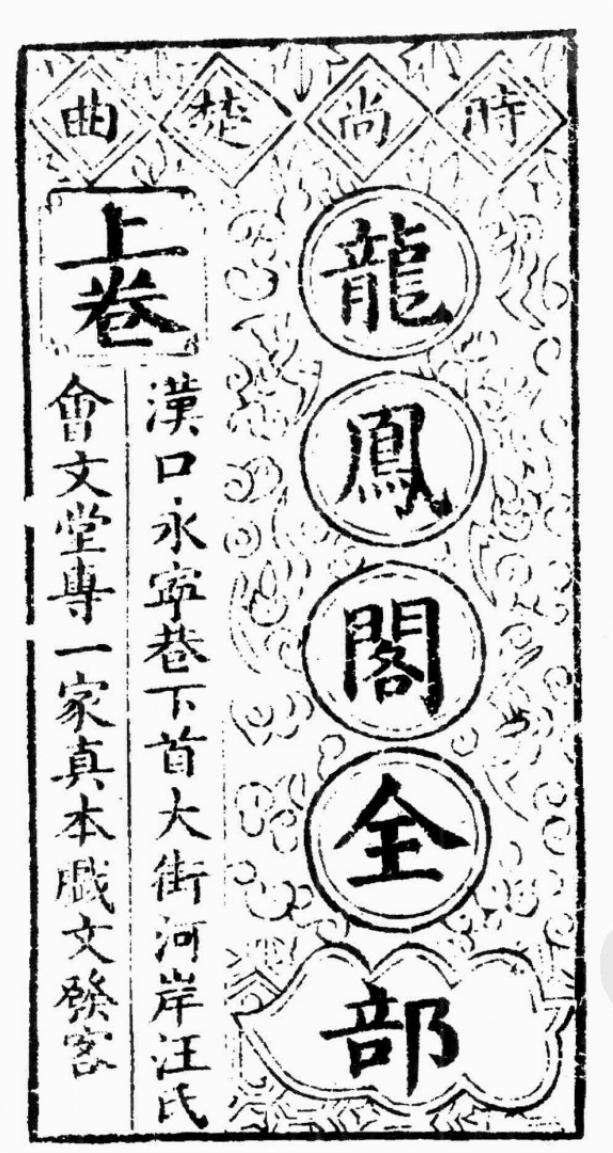 時尚楚曲
龍鳳閣全部
上卷
漢口永寧巷下首大街河岸汪氏
會文堂專一家真本戯文發客